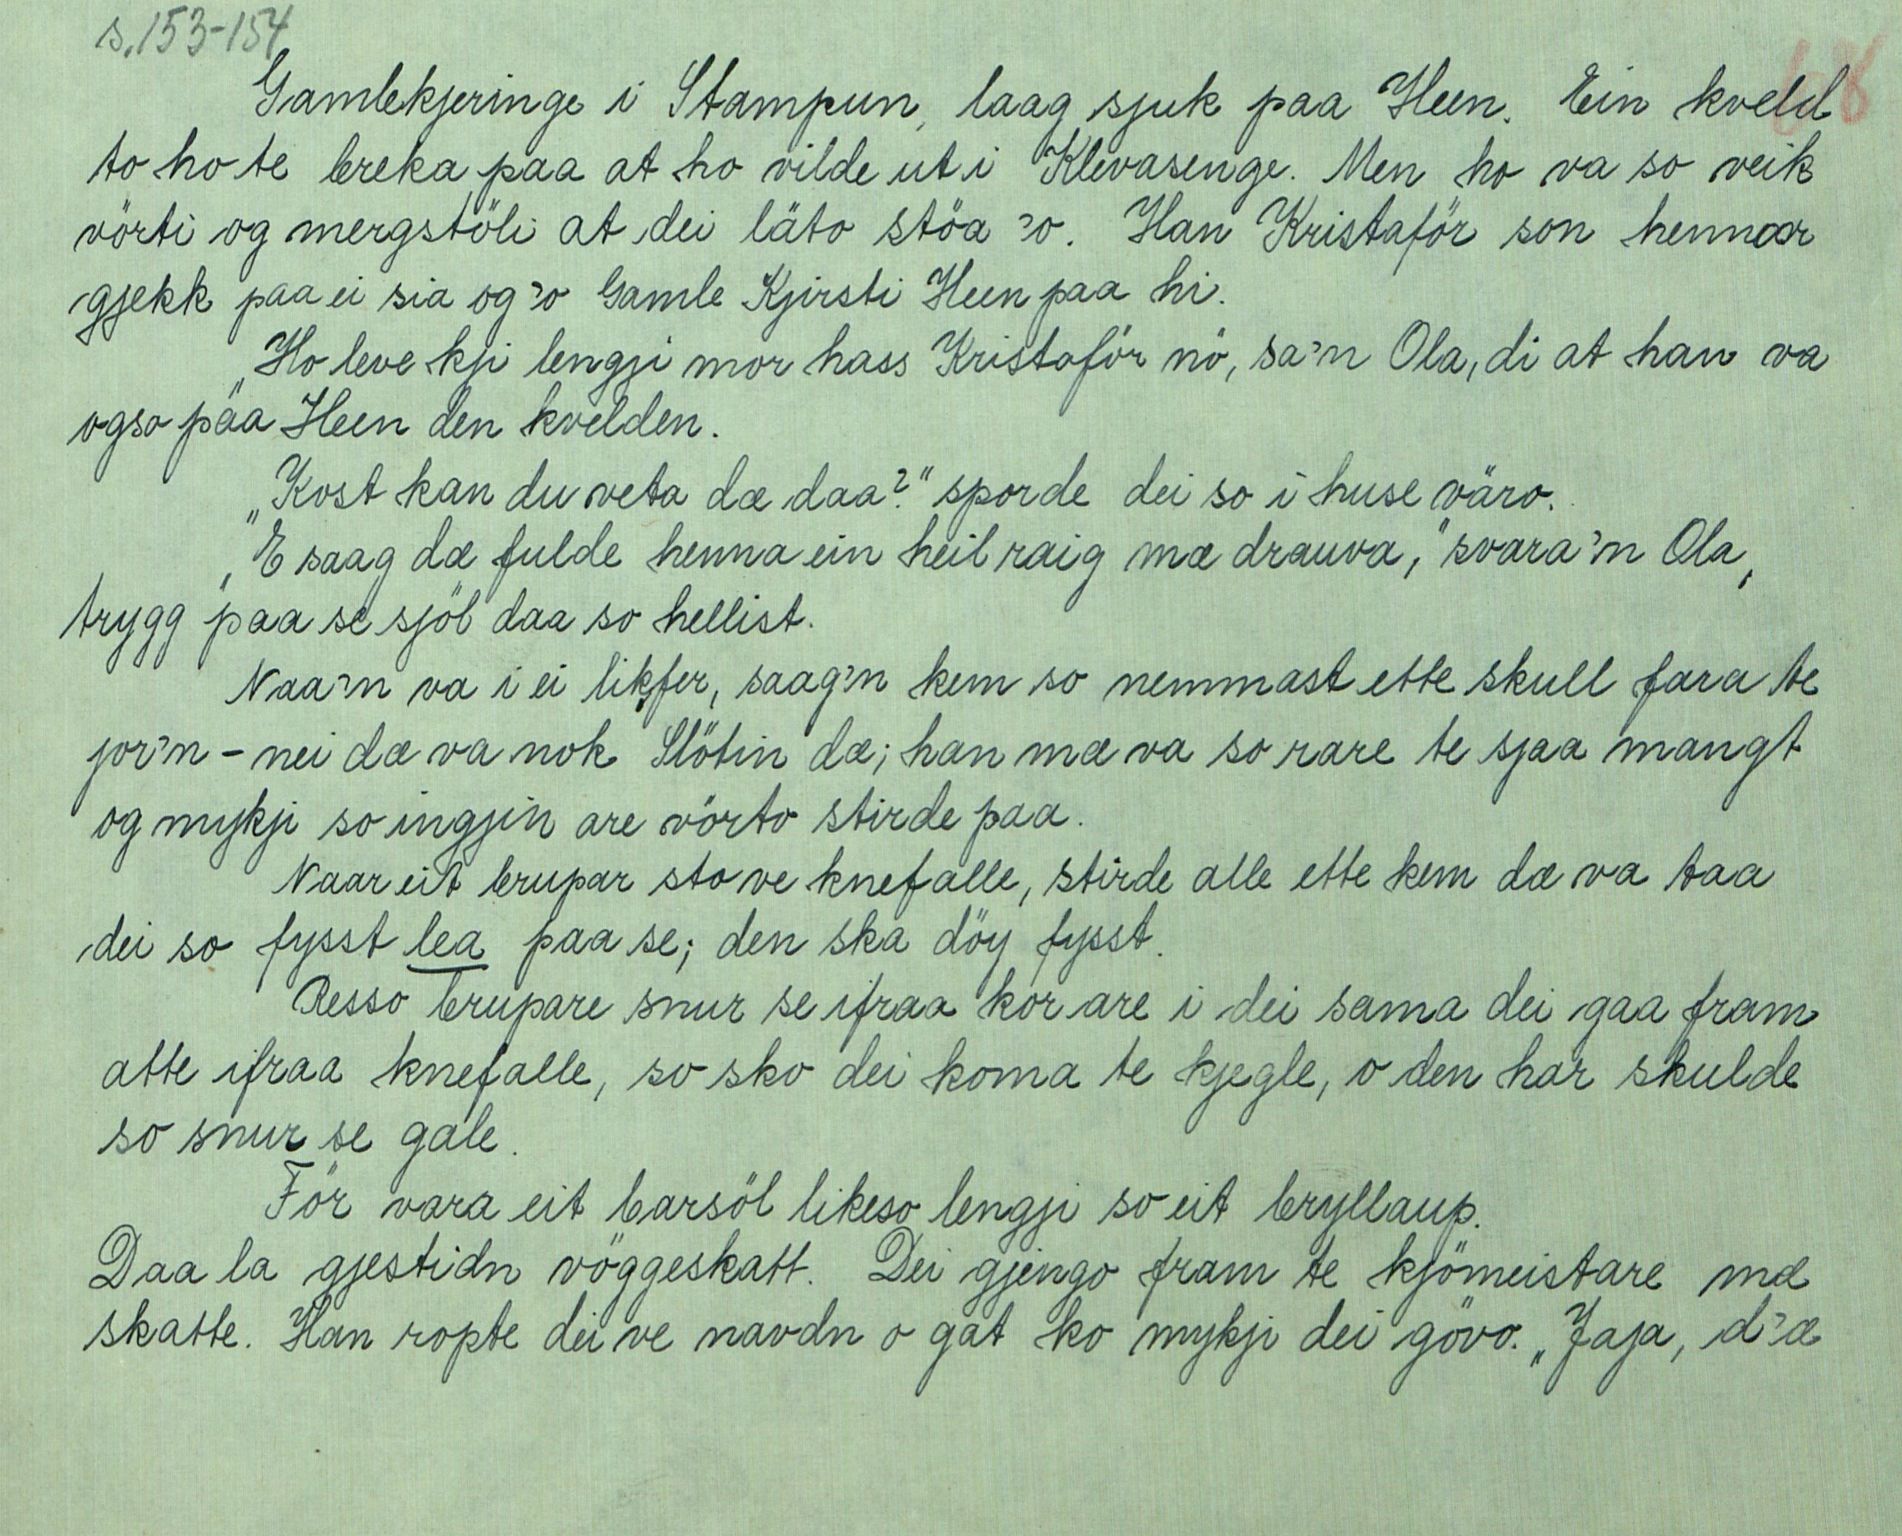 s. 153-154
68
Gamlekjeringe i Stampun, laag sjuk paa Heen. Ein kveld
to ho te breka paa at ho vilde ut i Klevasenge. Men ho va so veik
vörti og mergstöli at dei läto stöa 'o. Han Kristaför son hennar
gjekk paa ei sia og 'o Gamle Kjirsti Heen paa hi.
„Ho leve kji lengji mor hass Kristaför nö, sa'n Ola, di at han va
ogso paa Heen den kvelden.
„Kost kan du veta dæ daa?" sporde dei so i huse väro.
„E saag dæ fulde henna ein heil raig mæ drauva," svara'n Ola,
trygg paa se sjöl daa so hellist.
Naa'n va i ei likfer, saag'n kem so nemmast ette skull fara te
jor'n - nei dæ va nok Slötin dæ; han mæ va so rare te sjaa mangt
og mykji so ingjin are vörto stirde paa.
Naar eit brupar sto ve knefalle, stirde alle ette kem dæ va taa
dei so fysst lea paa se; den ska döy fysst.
Resso brupare snur se ifraa kor are i dei sama dei gaa fram
atte ifraa knefalle, so sko dei koma te kjegle, o den har skulde
so snur se gale.
För vara eit barsöl likeso lengji so eit bryllaup.
Daa la gjestidn vöggeskatt. Dei gjengo fram te kjömeistare mæ
skatte. Han ropte dei ve navdn o gat ko mykji dei gövo. „Jaja, d'æ